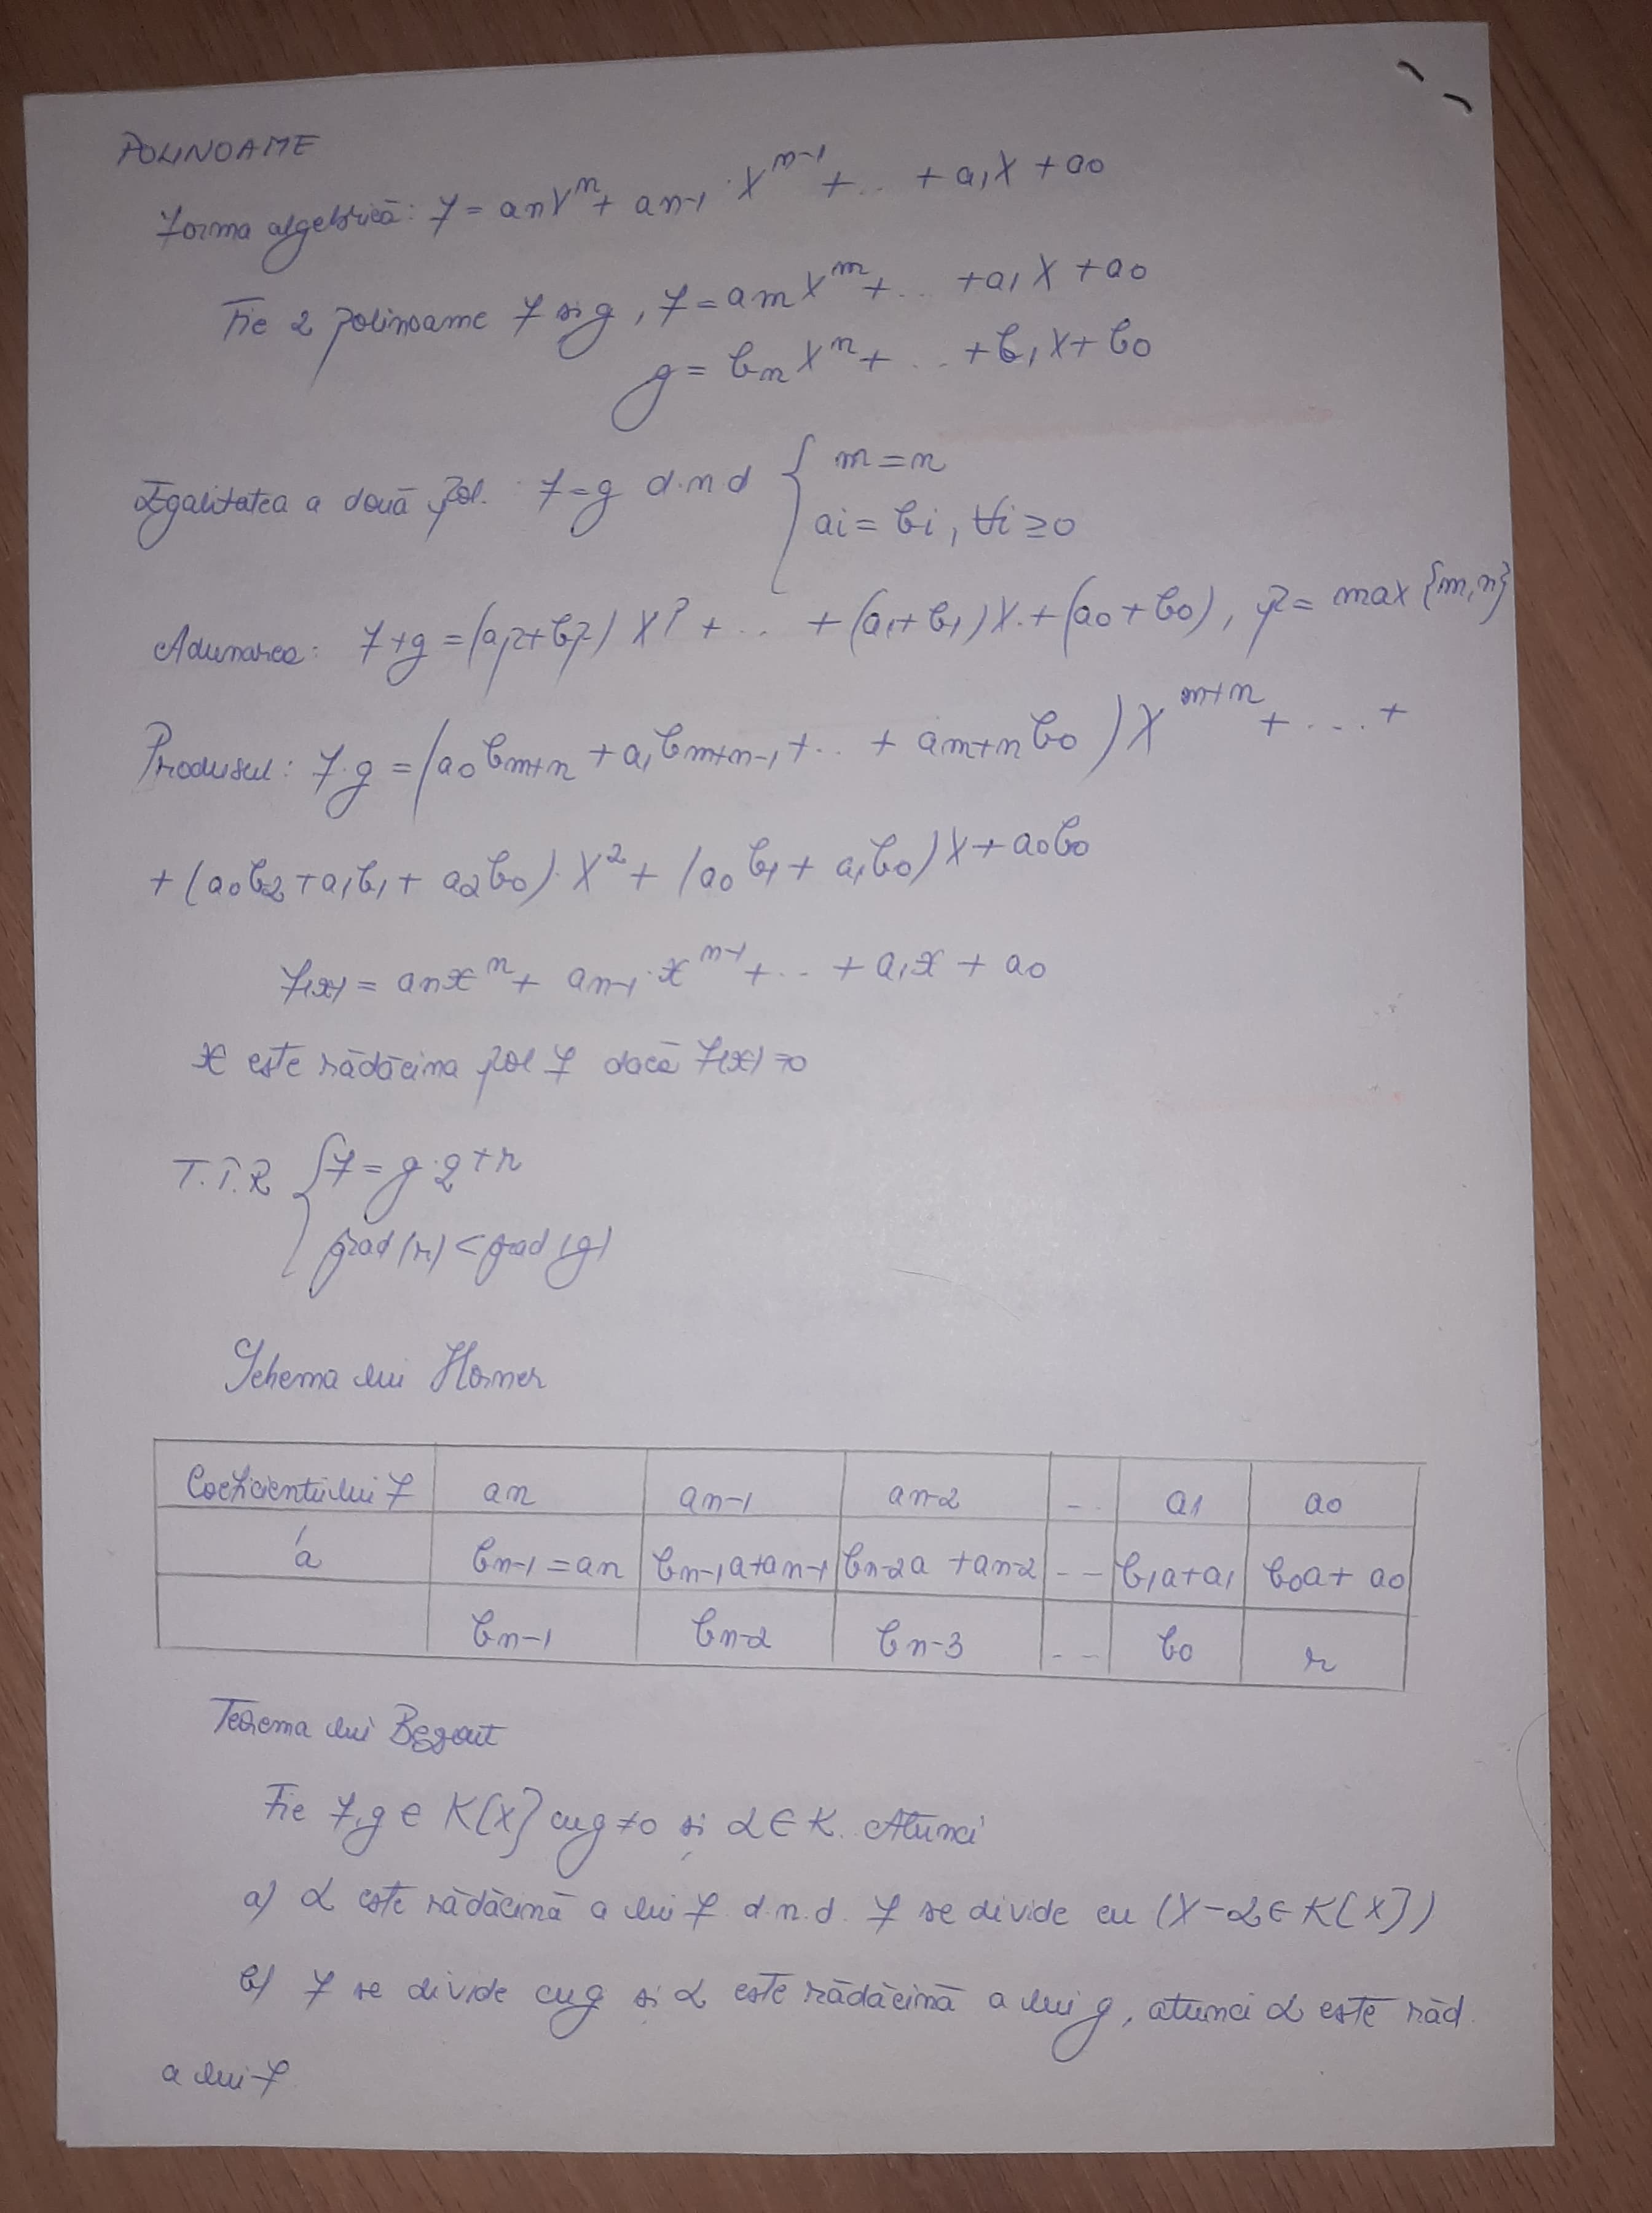 POLINOAME
Forma algebrică: f = anXⁿ + an-1 · Xⁿ⁻¹ + .. + a1X + a0
Fie 2 polinoame f și g, f = amXᵐ + .. + a1X + a0
g = bnXⁿ + .. + b1X + b0
Egalitatea a două pol. : f = g d.n d { m = n
ai = bi, ∀i ≥ 0
Adunarea: f + g = (ap + bp) Xᵖ + .. + (a1 + b1)X + (a0 + b0), p = max {m, n}
Produsul: f·g = (a0bm+n + a1bm+n-1 + .. + am+nb0) Xᵐ⁺ⁿ + .... +
+ (a0b2 + a1b1 + a2b0)·X² + (a0b1 + a1b0)X + a0b0
f(x) = anxⁿ + an-1·xⁿ⁻¹ + .. + a1x + a0
x este rădăcina pol f dacă f(x) = 0
T.Î.R { f = g·q + r
grad (r) < grad (g)
Schema lui Horner
Coeficientii lui f an an-1 an-2 .. a1 a0
a bn-1 = an bn-1a+an-1 bn-2a + an-2 -- b1a+a1 b0a + a0
bn-1 bn-2 bn-3 -- b0 r
Teorema lui Bezout
Fie f,g ∈ K[X] cu g ≠ 0 și α ∈ K. Atunci
a) α este rădăcină a lui f d.n.d. f se divide cu (X - α ∈ K[X])
b) f se divide cu g și α este rădăcină a lui g, atunci α este răd.
a lui f